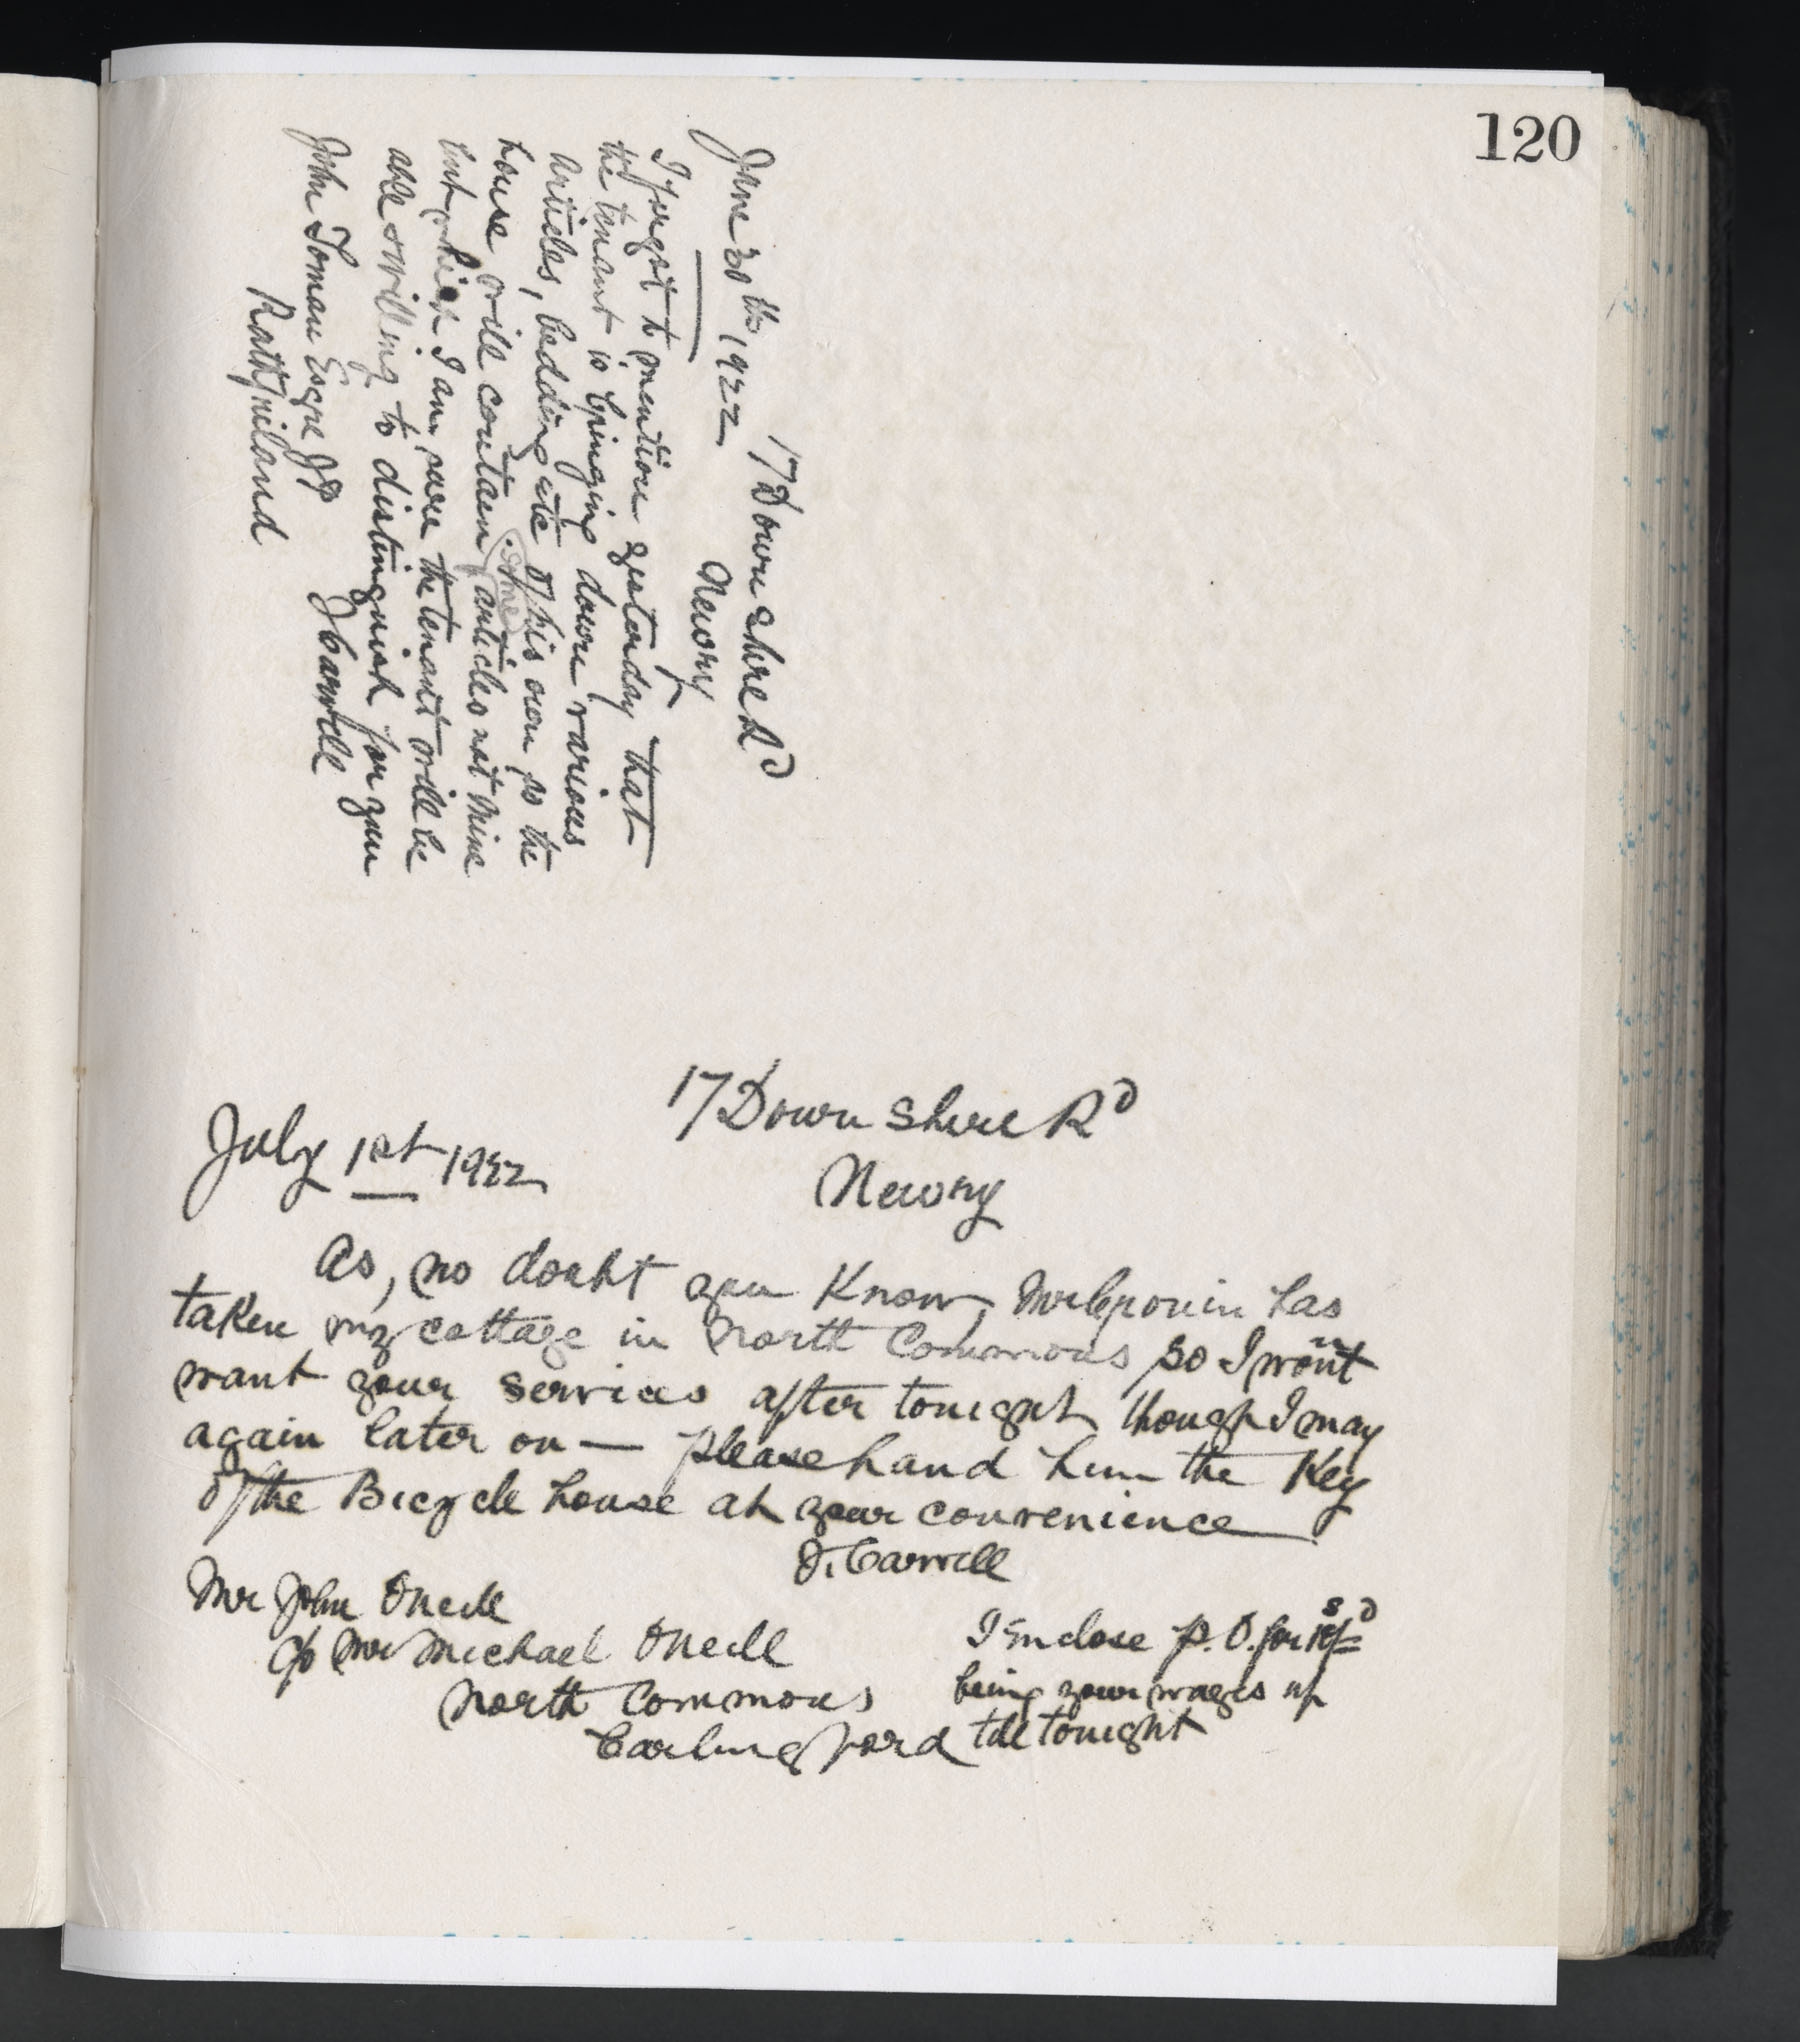 120
17 Downshire Rd
June 30th 1922
Newry
I forgot to mention yesterday that
the tenant is bringing down various
articles, bedding etc of his own so the
house will contain some articles not mine
but which I am sure the tenant will be
able & willing to distinguish for you
J Carvill
John Toman Esqre JP
Rathfriland
17 Downshire Rd
July 1st 1922
Newry
As, no doubt you know, Mr Cronin has
taken my cottage in North Commons so I won't
want your services after tonight though I may
again later on — please hand him the Key
of the Bicycle house at your convenience
J. Carvill
Mr John ONeill
c/o Mr Michael ONeill
North Commons
Carlingford
I Enclose P.O. for
being your wages up
till tonight